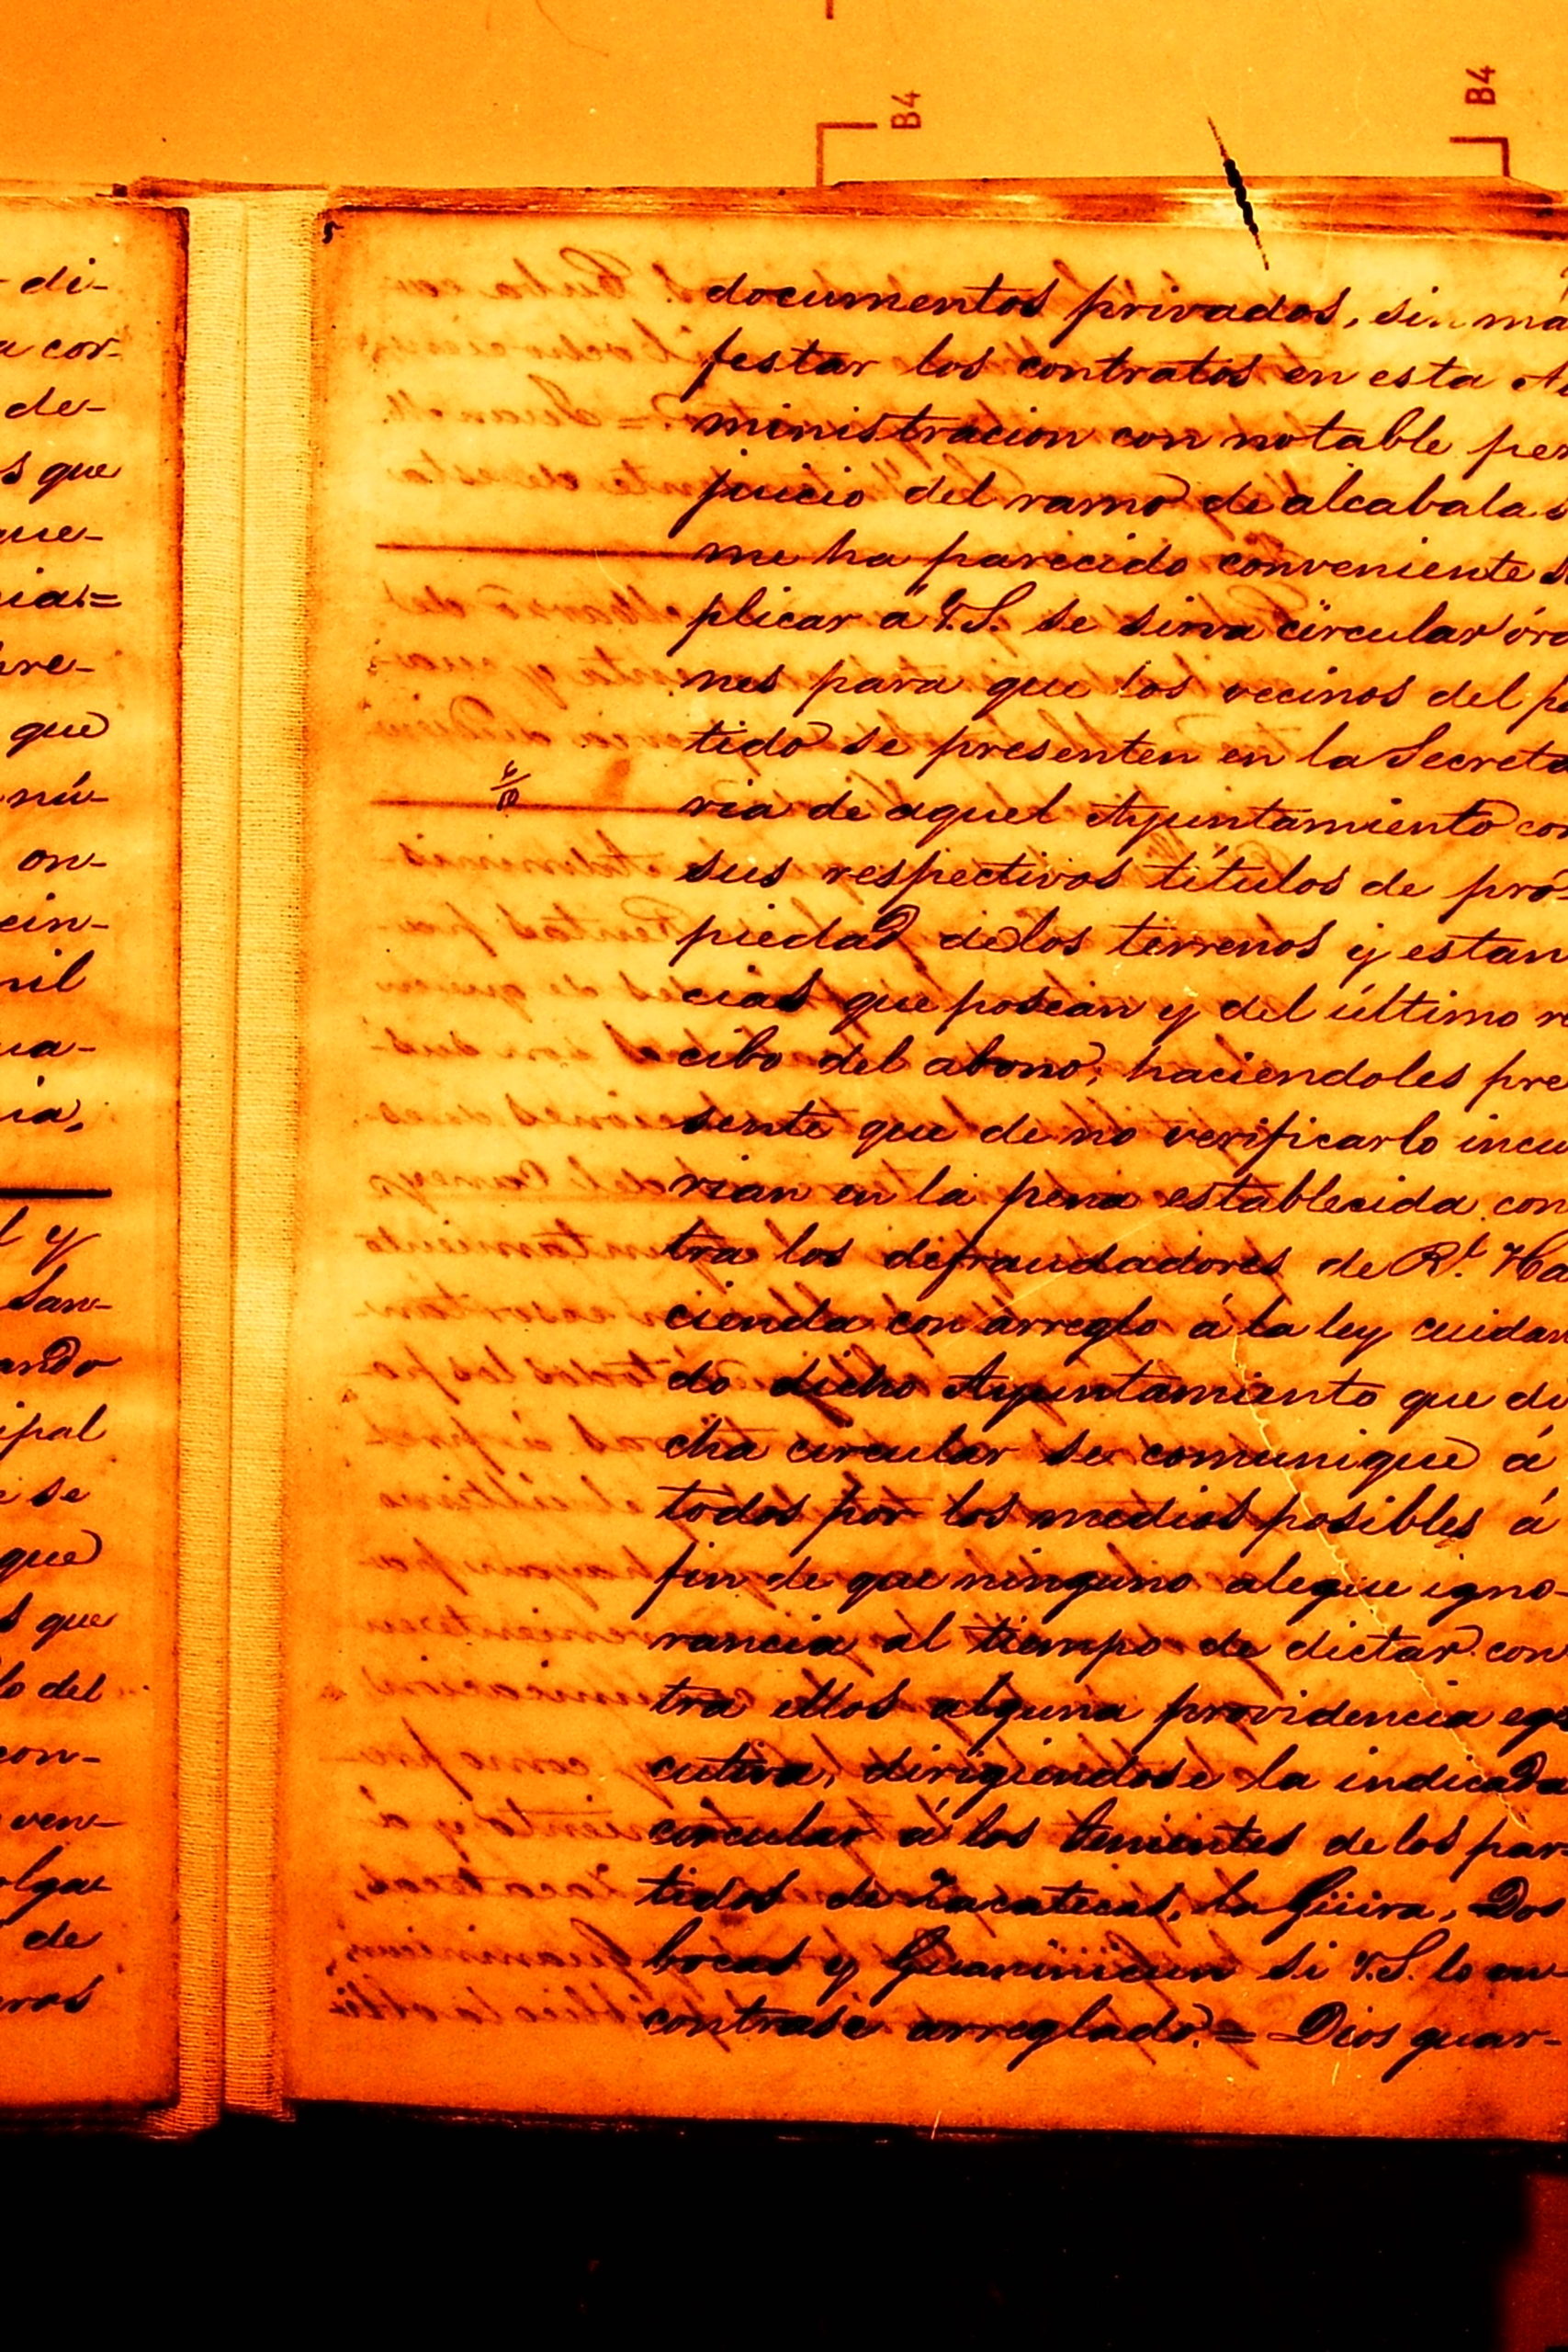 B4
B4
di-
a cor-
de-
s que
que-
cia.=
pre-
que
nú-
on-
cin-
mil
ua-
ia,
l y
San-
ando
ipal
e se
que
s que
lo del
con-
ven-
olga-
de
eros
documentos privados, sin ma
festar los contratos en esta Ad
ministracion con notable per
juicio del ramo de alcabalas
me ha parecido conveniente s
plicar á V.S. se sirva circular órd
nes para que los vecinos del p
tido se presenten en la Secreta
ria de aquel Ayuntamiento con
sus respectivos títulos de pro-
piedad de los terrenos y estan
cias que posean y del último re
cibo del abono, haciendoles pre
sente que de no verificarlo incu
rian en la pena establecida con
tra los defraudadores de Rl. Ha
cienda con arreglo á la ley cuidan
do dicho Ayuntamiento que di
cha circular se comunique á
todos por los medios posibles á
fin de que ninguno alegue igno-
rancia al tiempo de dictar con
tra ellos alguna providencia ege
cutiva, dirigiendose la indicada
circular á los tenientes de los par-
tidos de Zacatecas, la Güira, Dos
bocas y Guaninicun si V.S. lo en-
contrase arreglado.= Dios guar-